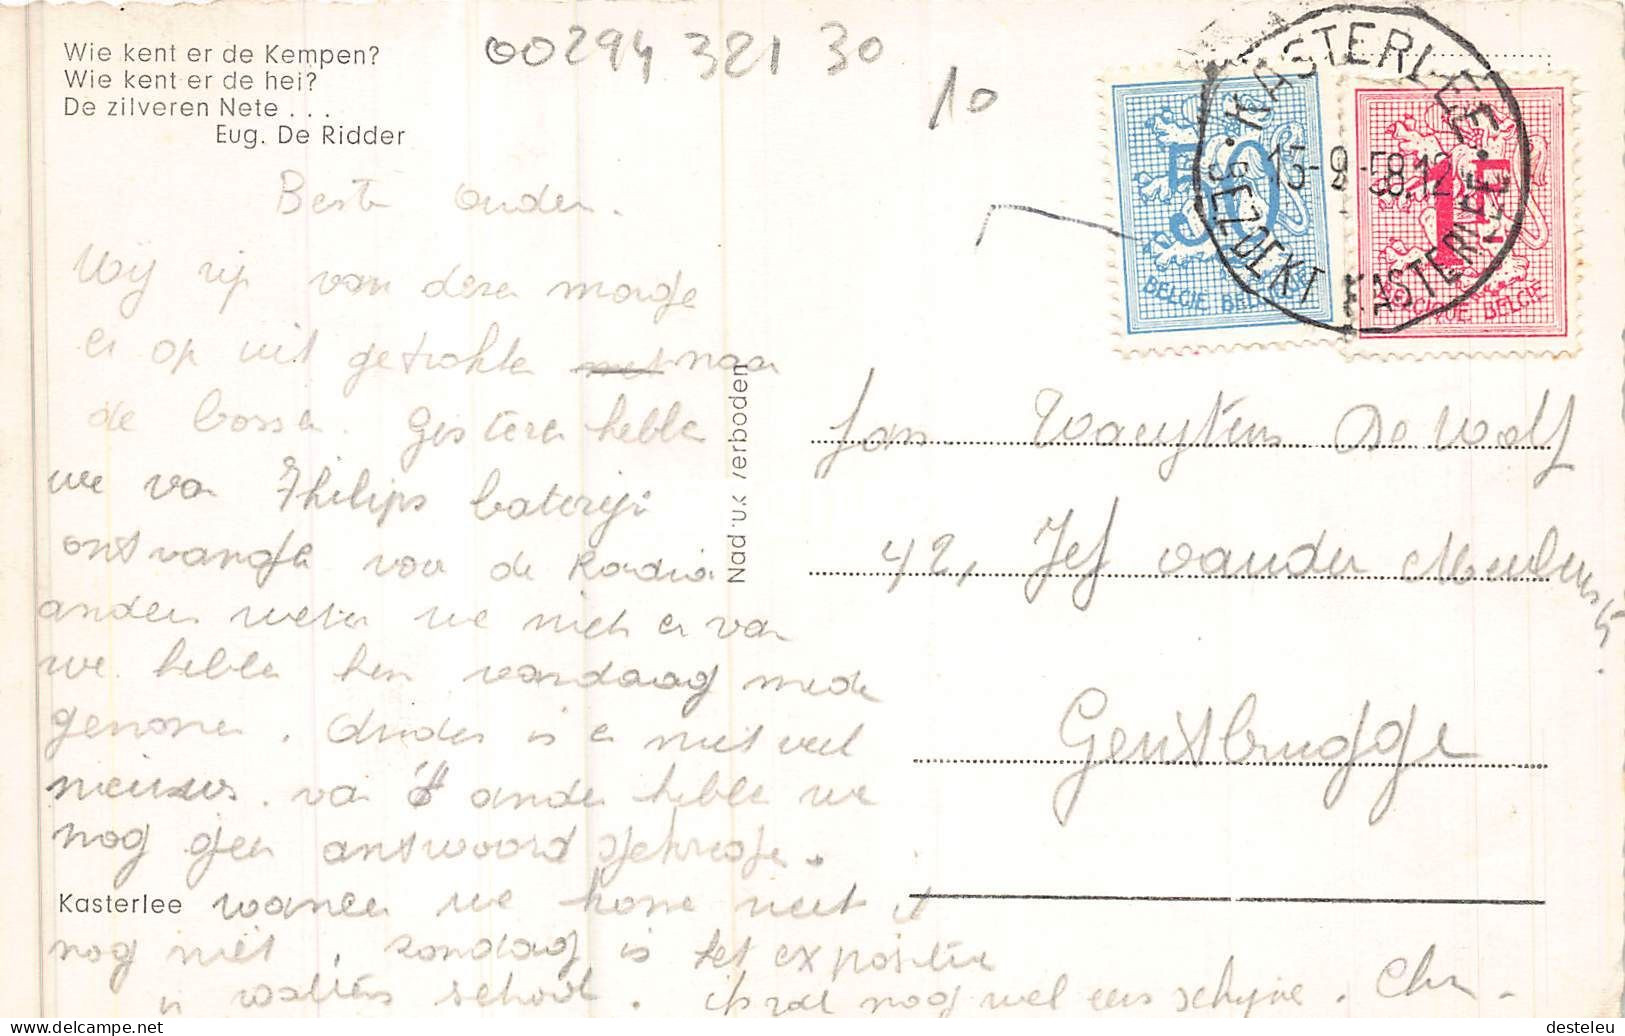 Wie kent er de Kempen?
Wie kent er de hei?
De zilveren Nete . . .
Eug. De Ridder
00294 321 30
10
KASTERLEE
15-9-58.12
BEZOEKT KASTERLEE
50
BELGIE BELGIQUE
1F
BELGIQUE BELGIE
Beste ouders.
Wij zijn van deze morge
er op uit getrokke naar
de bosse. Gistere hebbe
we van Philips baterij
ontvange voor de Radio
anders wete we niets er van
we hebbe hem vandaag mede
genome. Ander is er niet veel
nieuws. van ander hebbe we
nog geen antwoord gekrege.
Kasterlee
wanneer we kome weet
nog niet, zondag is het expositie
in school. ik zal nog wel eens schrijve. Chr.
Nadruk verboden
Jan Waeytens De Wolf
42, Jef vander Meulen
Gentbrugge
desteleu
www.delcampe.net